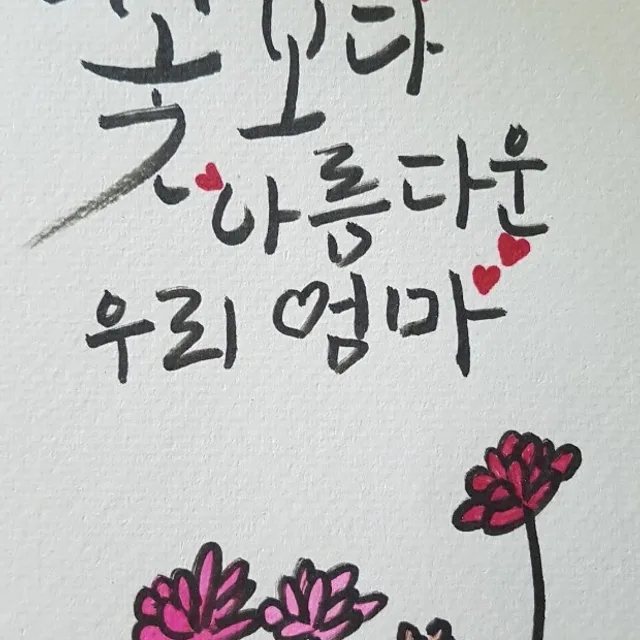 꽃보다
아름다운
우리 엄마